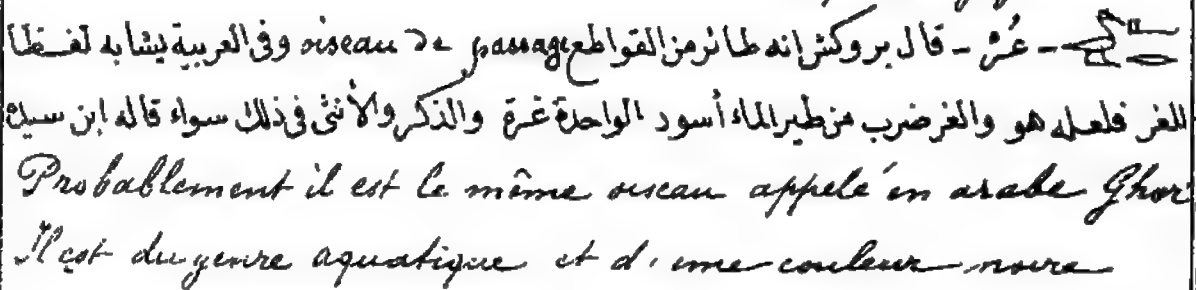 - عُرْ - قال بروكش إنه طائر من القواطع oiseau de passage وفى العربية يشابه لفظا
الغر فلعله هو والغر ضرب من طير الماء أسود الواحدة غرة والذكر والأنثى فى ذلك سواء قاله ابن سيده
Probablement il est le même oiseau appelé en arabe Ghor
Il est du genre aquatique et d'une couleur noire